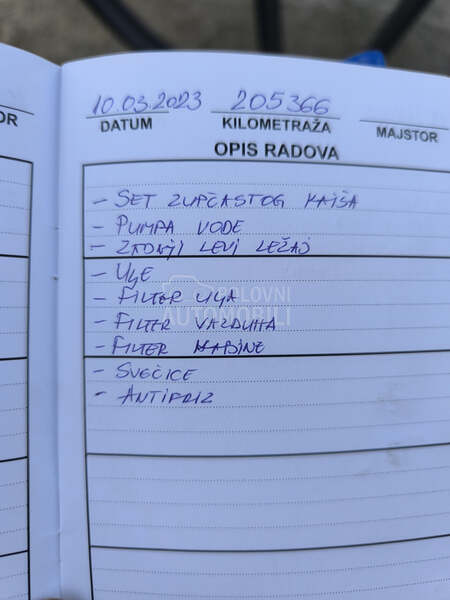 OR
10.03.2023 205366
DATUM KILOMETRAŽA MAJSTOR
OPIS RADOVA
- SET ZUPČASTOG KAIŠA
- PUMPA VODE
- ZADNJI LEVI LEŽAJ
- ULJE
- FILTER ULJA
POLOVNI
AUTOMOBILI
- FILTER VAZDUHA
- FILTER KABINE
- SVEĆICE
- ANTIFRIZ